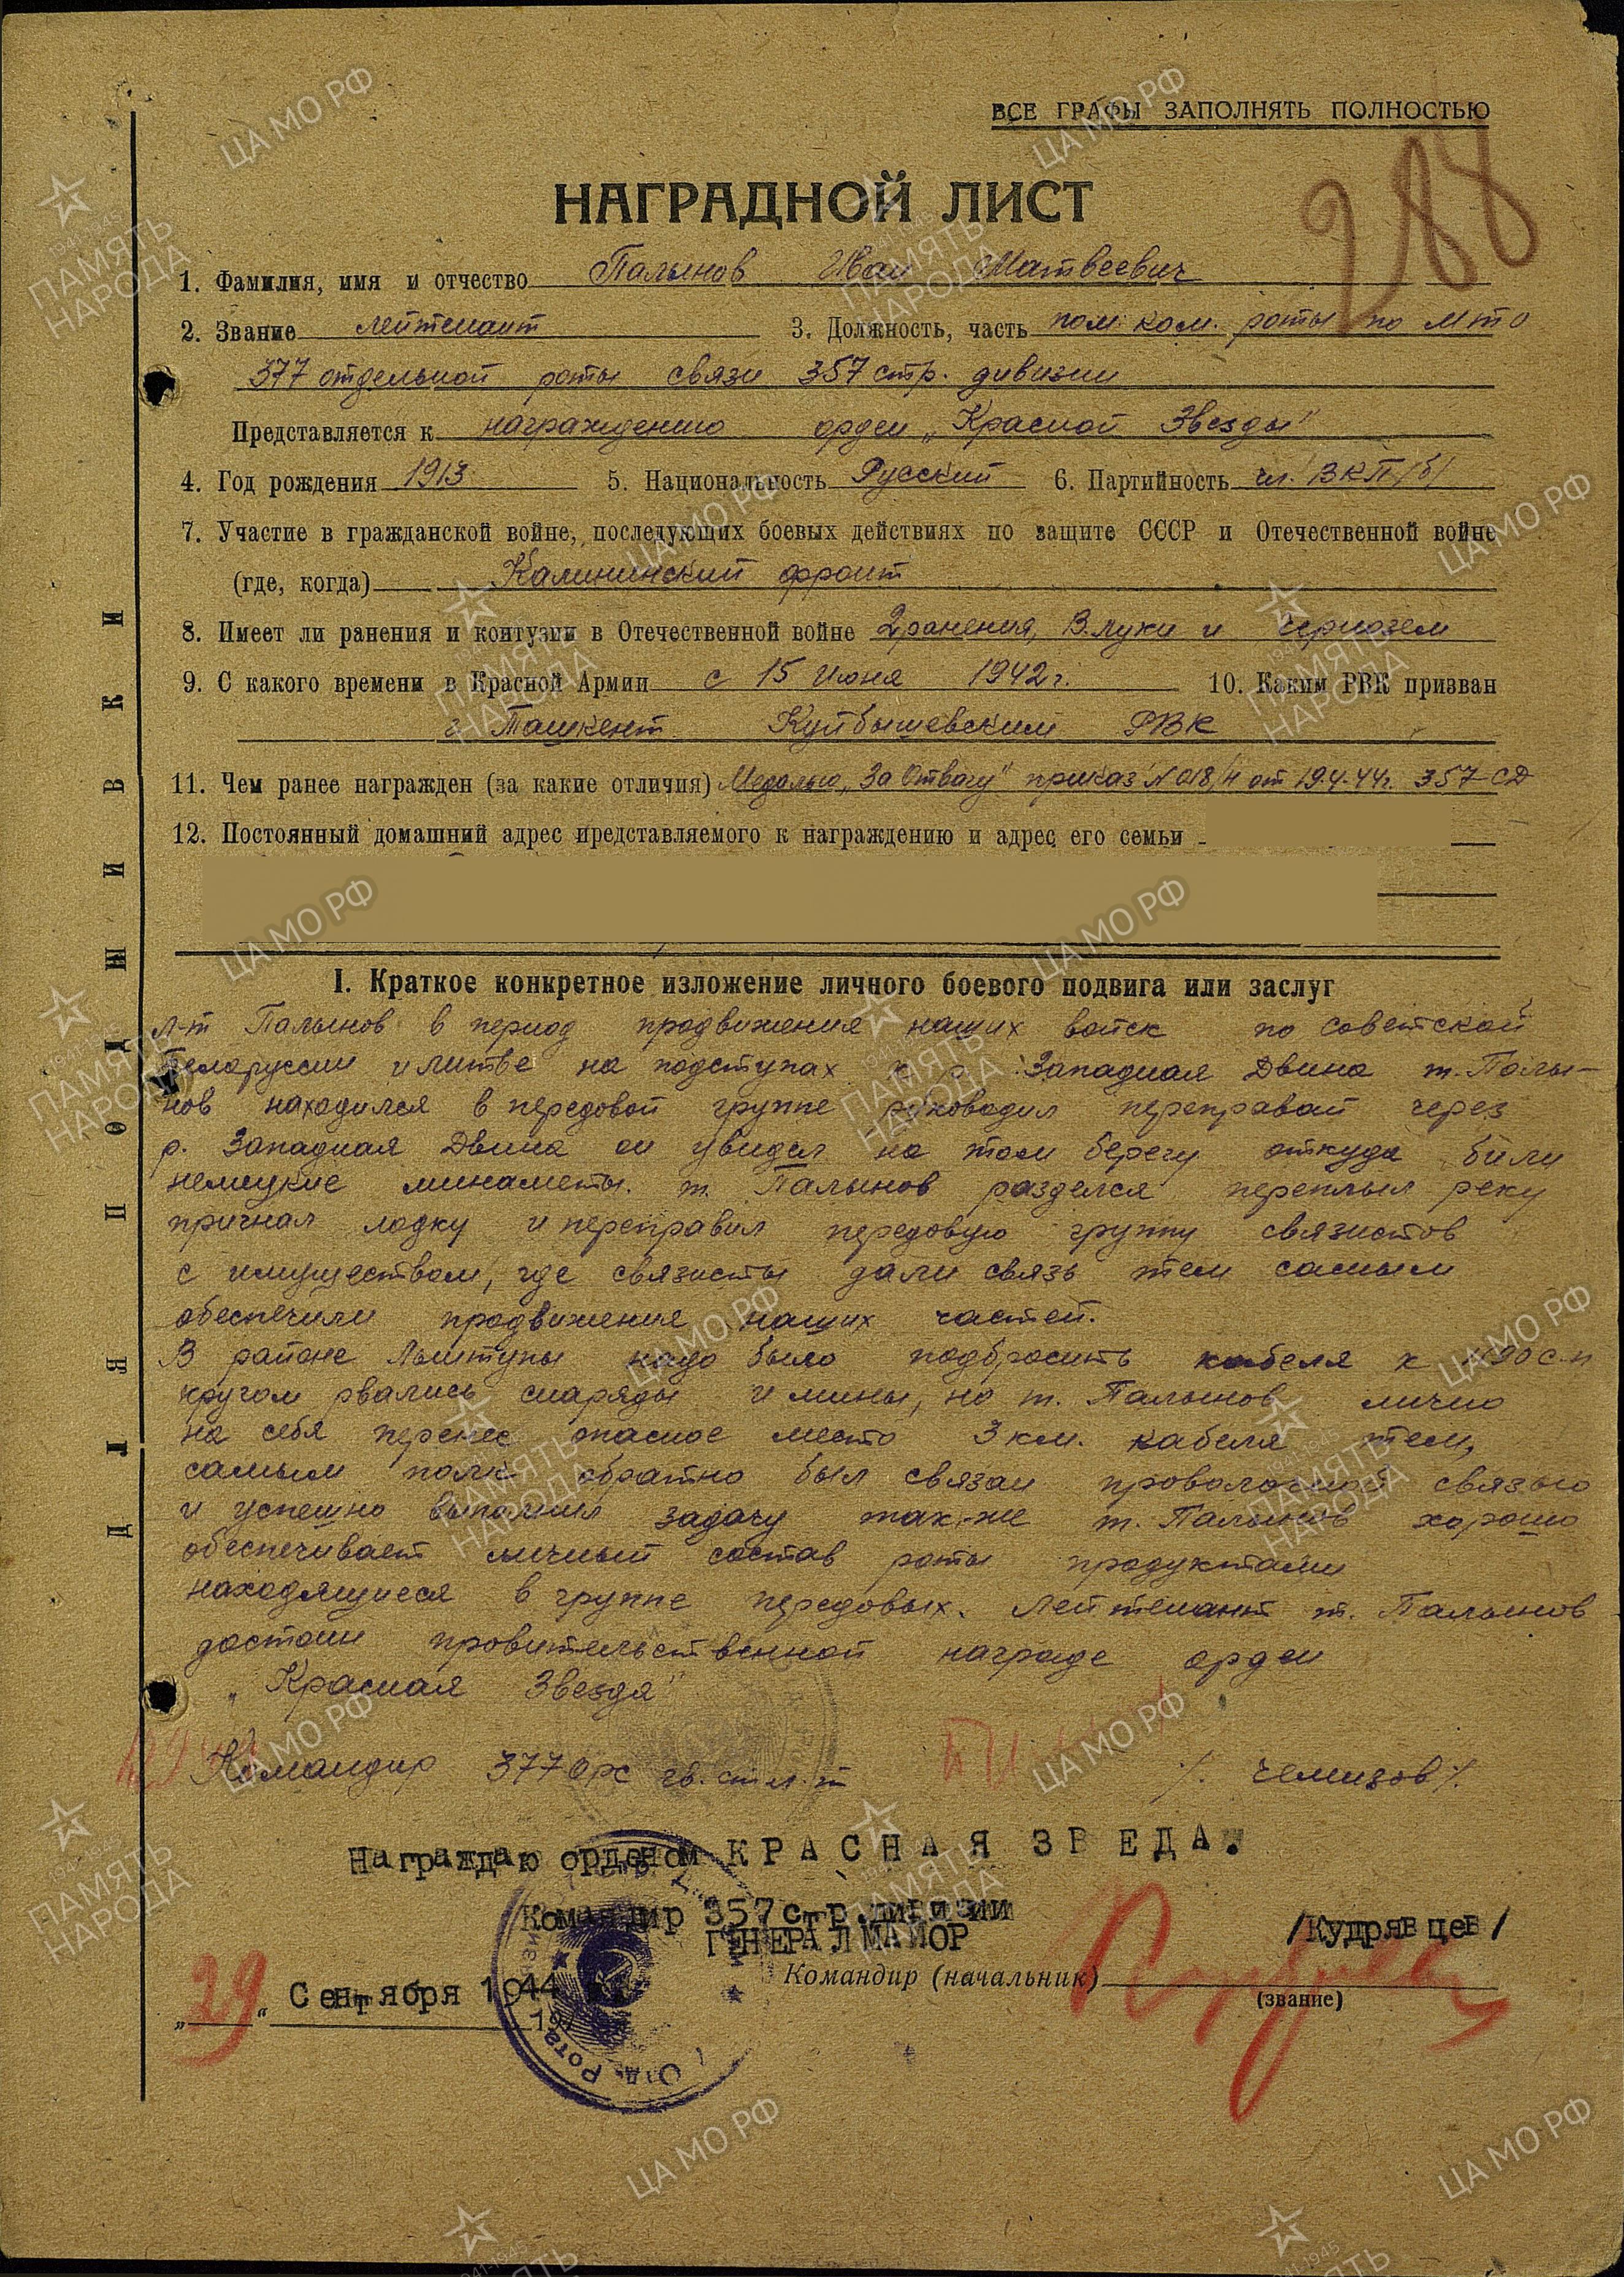 ВСЕ ГРАФЫ ЗАПОЛНЯТЬ ПОЛНОСТЬЮ
288
НАГРАДНОЙ ЛИСТ
1. Фамилия, имя и отчество Палынов Иван Матвеевич
2. Звание лейтенант 3. Должность, часть пом. ком. роты по МТО
377 отдельной роты связи 357 стр. дивизии
Представляется к награждению орден „Красной Звезды"
4. Год рождения 1913 5. Национальность Русский 6. Партийность чл. ВКП/б/
7. Участие в гражданской войне, последующих боевых действиях по защите СССР и Отечественной войне
(где, когда) Калининский фронт
8. Имеет ли ранения и контузии в Отечественной войне 2 ранения, В.луки и Чернозем
9. С какого времени в Красной Армии с 15 Июня 1942 г. 10. Каким РВК призван
г. Ташкент Куйбышевским РВК
11. Чем ранее награжден (за какие отличия) Медалью „За Отвагу" приказ № 018/н от 19.4.44г. 357 СД
12. Постоянный домашний адрес представляемого к награждению и адрес его семьи
I. Краткое конкретное изложение личного боевого подвига или заслуг
л-т Палынов в период продвижения наших войск по советской
Белоруссии и литве на подступах к р. Западная Двина т. Палы-
нов находился в передовой группе руководил переправай через
р. Западная Двина он увидел на том берегу откуда били
немецкие минаметы. т. Палынов разделся переплыл реку
пригнал лодку и переправил передовую группу связистов
с имуществом, где связисты дали связь тем самым
обеспечили продвижение наших частей.
В районе Лынтупы надо было подбросить кабеля к 1190 с.п
кругом рвались снаряды и мины, но т. Палынов лично
на себя перенес опасное место 3 км. кабеля тем,
самым полк обратно был связан проволочной связью
и успешно выполнил задачу так-же т. Палынов хорошо
обеспечивает личный состав роты продуктами
находящиеся в группе передовых. Лейтенант т. Палынов
достоин провительственной награде орден
„Красная Звезда"
Командир 377 ОРС гв. ст. л-т /. Чемизов /.
Награждаю орденом КРАСНАЯ ЗВЕДА.
Командир 357 стр. дивизии
ГЕНЕРАЛ МАЙОР /Кудрявцев/
Командир (начальник)
(звание)
„29" Сентября 1944
194
Отд. Рота
ДЛЯ ПОДШИВКИ
ЦАМО РФ
ПАМЯТЬ НАРОДА
1941-1945